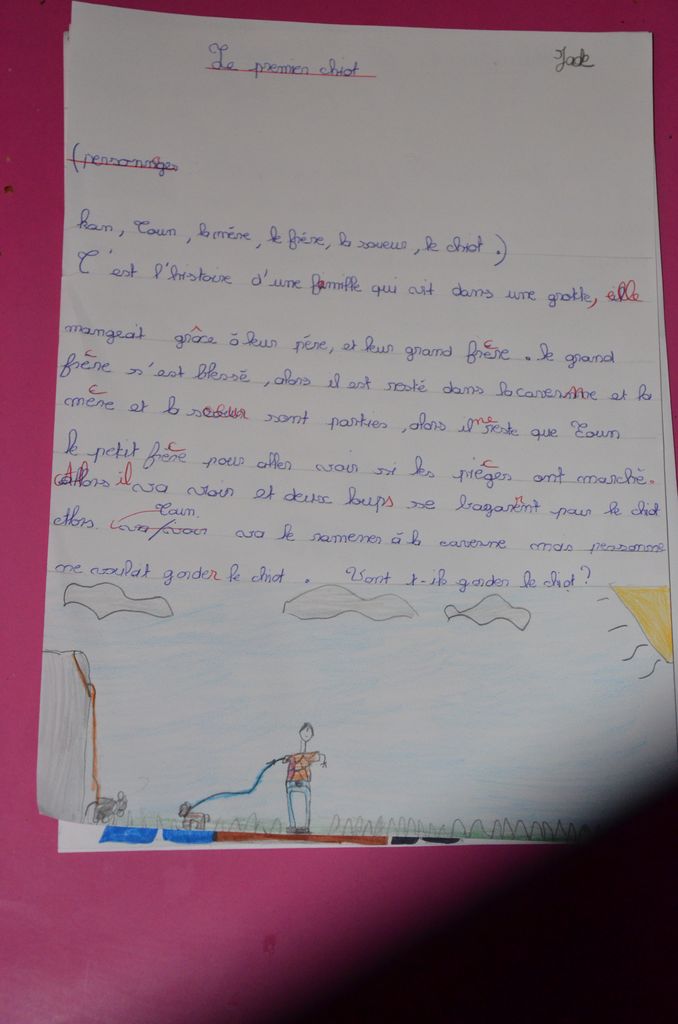 Le premier chiot
Jade
(personnages
kan, Toun, la mère, le frère, la soueur, le chiot.)
C'est l'histoire d'une famille qui vit dans une grotte, elle
mangeait grâce à leur père, et leur grand frère. le grand
frère s'est blessé, alors il est resté dans la caverne et la
mère et la soeur sont parties, alors il ne reste que Toun
le petit frère pour aller voir si les pièges ont marché.
Alors il va voir et deux loups se bagarent pour le chiot
Toun
Alors va le ramener à la caverne mas personne
ne voulait garder le chiot. Vont t-ils garder le chiot?